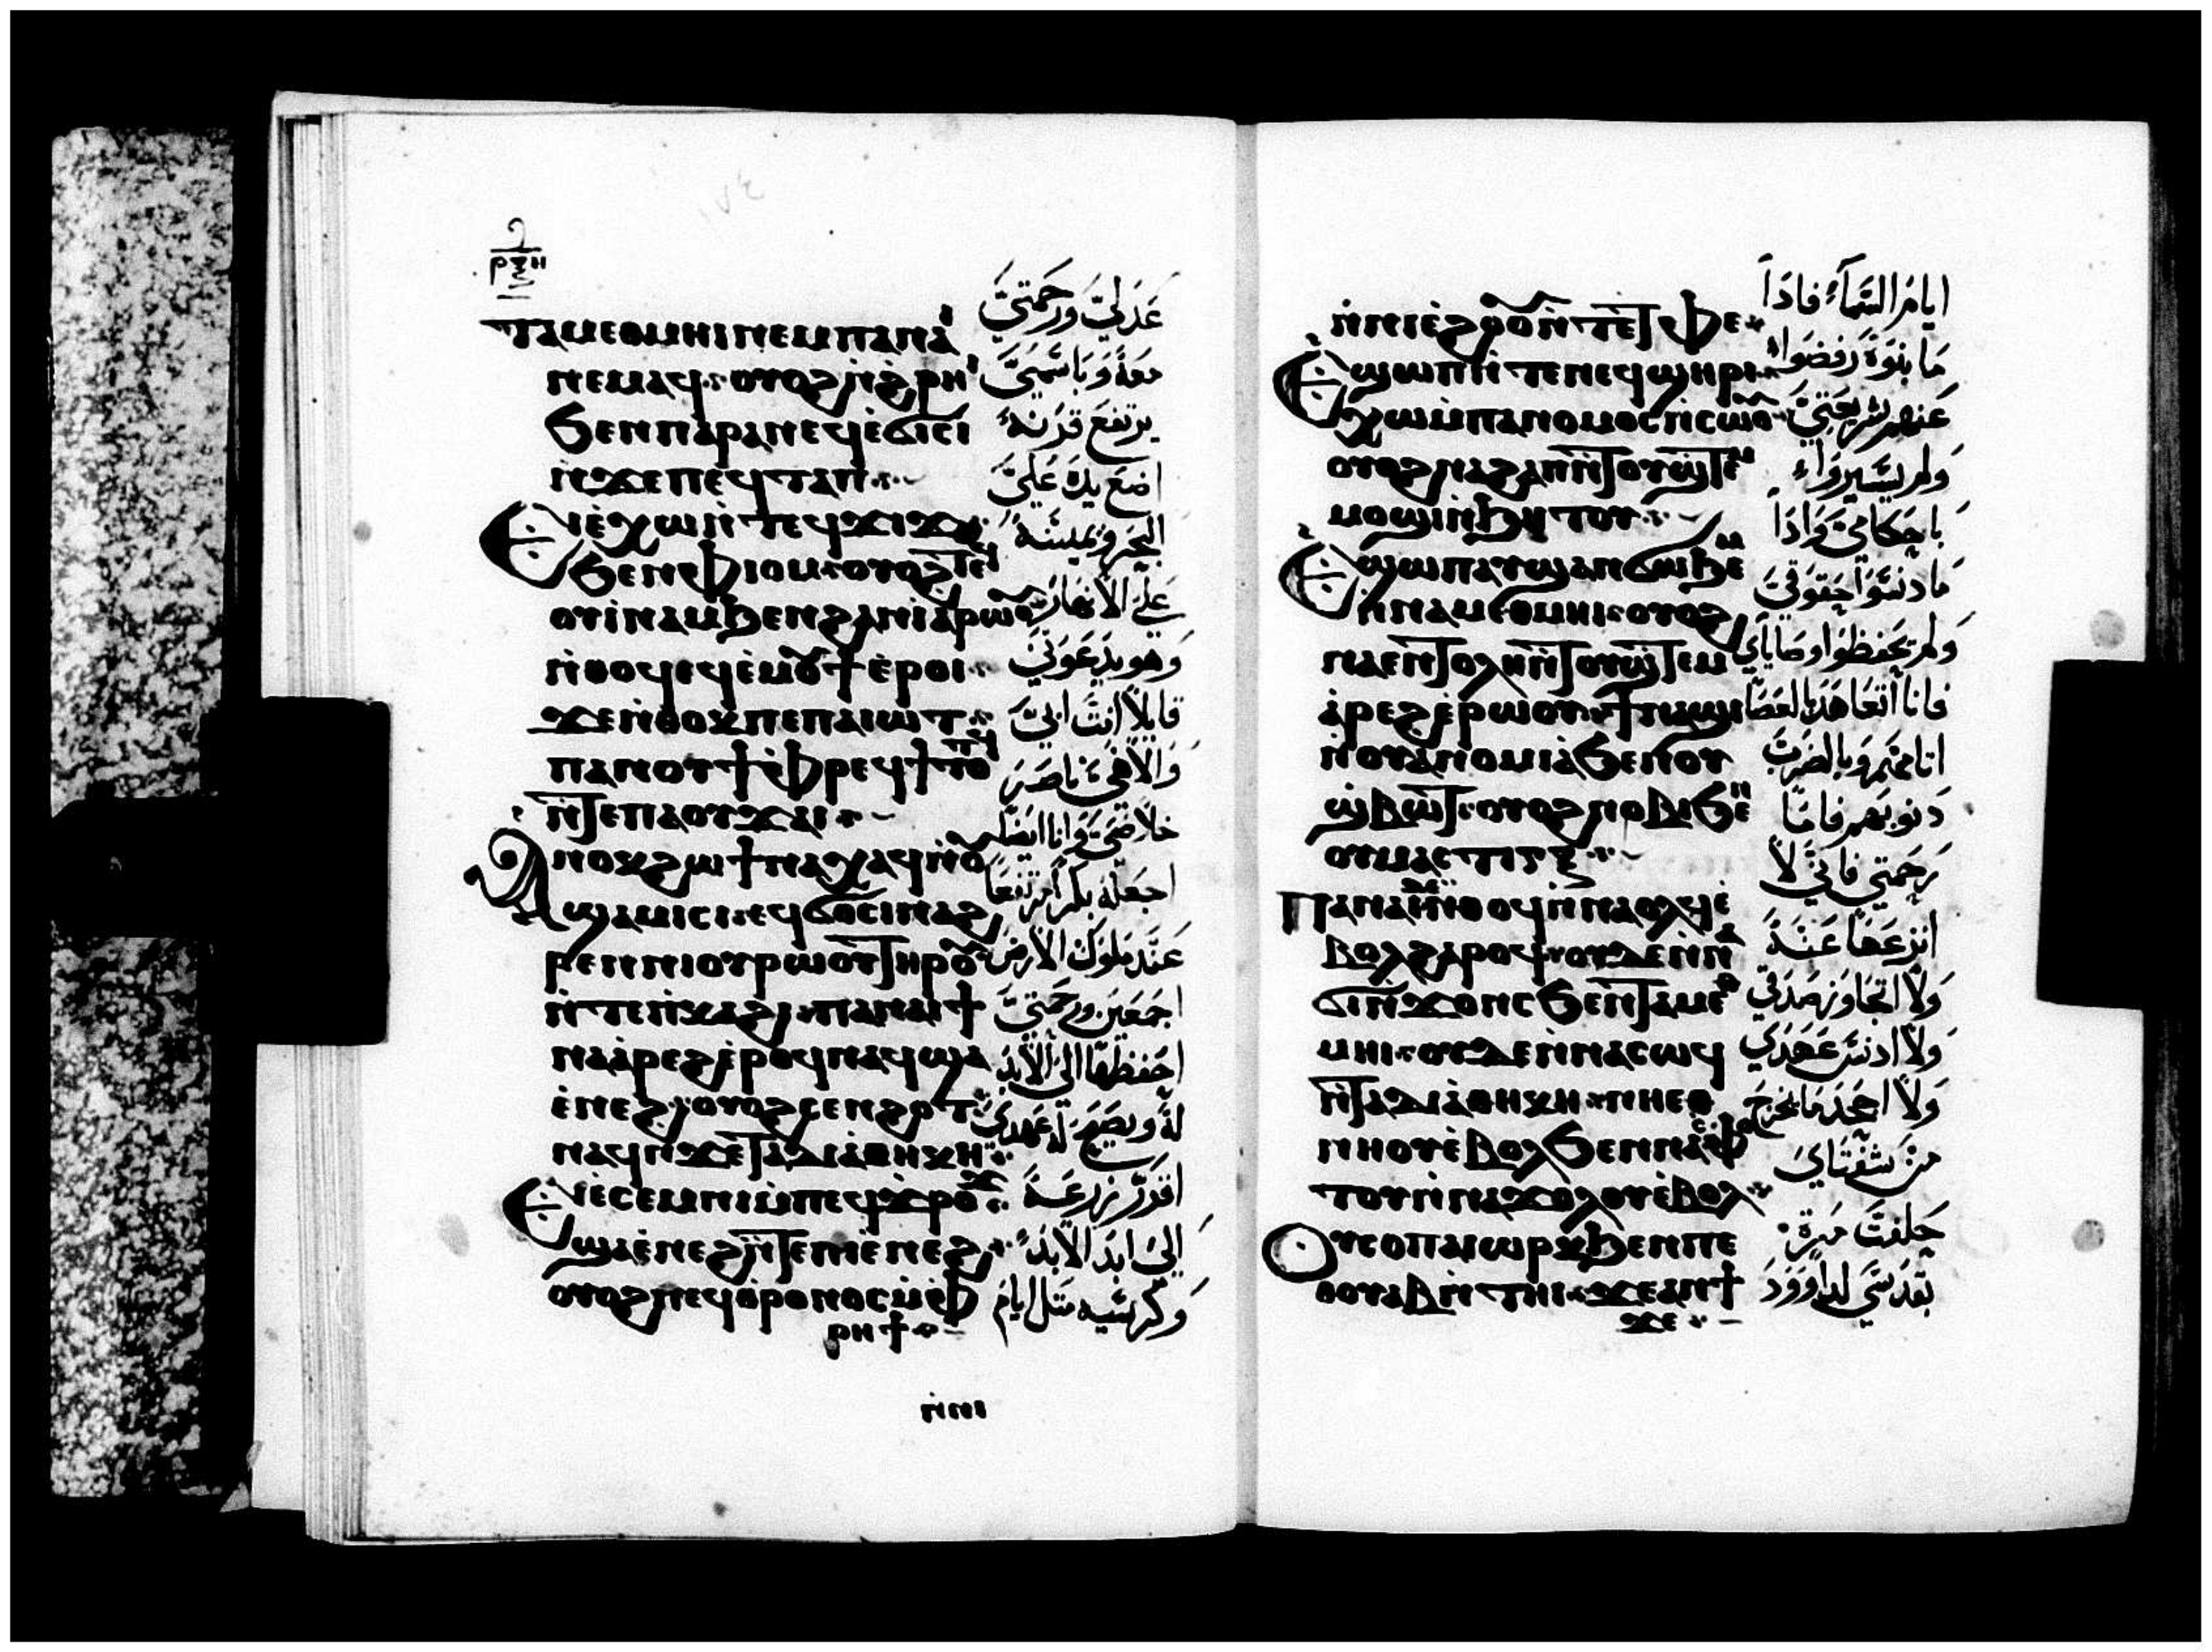 ⲣⲝⲏ
ⲧⲁⲙⲉⲑⲙⲏⲓ ⲛⲉⲙ ⲡⲁⲛⲁⲓ
ⲛⲉⲙⲁϥ ⲟⲩⲟϩ ⲛ̀ϩⲣⲏⲓ
ϧⲉⲛ ⲡⲁⲣⲁⲛ ⲉϥⲉ̀ϭⲓⲥⲓ
ⲛ̀ϫⲉ ⲡⲉϥⲧⲁⲡ
Ⲉⲓⲉ̀ⲭⲱ ⲛ̀ⲧⲉϥϫⲓϫ
ϧⲉⲛ ⲫⲓⲟⲙ ⲟⲩⲟϩ ⲧⲉϥ
ⲟⲩⲓⲛⲁⲙ ϧⲉⲛ ϩⲁⲛⲓⲁⲣⲱⲟⲩ
ⲛ̀ⲑⲟϥ ⲉϥⲉ̀ⲙⲟⲩϯ ⲉ̀ⲣⲟⲓ
ϫⲉ ⲛ̀ⲑⲟⲕ ⲡⲉ ⲡⲁⲓⲱⲧ
ⲡⲁⲛⲟⲩϯ ⲫⲣⲉϥϯⲧⲟⲧϥ
ⲛ̀ⲧⲉ ⲡⲁⲟⲩϫⲁⲓ
Ⲁⲛⲟⲕ ϩⲱ ϯⲛⲁⲭⲁϥ ⲛ̀ⲟⲩ
ϣⲁⲙⲓⲥⲓ ⲉϥϭⲟⲥⲓ ⲛⲁϩ
ⲣⲉⲛ ⲛⲓⲟⲩⲣⲱⲟⲩ ⲧⲏⲣⲟⲩ
ⲛ̀ⲧⲉ ⲡ̀ⲕⲁϩⲓ ⲡⲁⲛⲁⲓ ϯ
ⲛⲁⲁ̀ⲣⲉϩ ⲉ̀ⲣⲟϥ ⲛⲁϥ ϣⲁ
ⲉ̀ⲛⲉϩ ⲟⲩⲟϩ ⲥⲉⲛϩⲟⲧ
ⲛⲁϥ ⲛ̀ϫⲉ ⲧⲁⲇⲓⲁⲑⲏⲕⲏ
Ⲉⲓⲉ̀ⲥⲉⲙⲛⲓ ⲙ̀ⲡⲉϥϫⲣⲟϫ
ϣⲁ ⲉ̀ⲛⲉϩ ⲛ̀ⲧⲉ ⲡⲓⲉ̀ⲛⲉϩ
ⲟⲩⲟϩ ⲡⲉϥⲑⲣⲟⲛⲟⲥ ⲙ̀ⲫ
ⲣⲏϯ
ⲛ̀ⲛⲓ
عَدلِيَّ وَرَحمَتِيَّ
معَهُ وَبِاسْمِيَّ
يرتفعَ قَرنهُ
اضعَ يدَهُ عَلَيَّ
البحَر وَيمينَهُ
عَلَى الاَنهَار
وَهو يدعُونِي
قايلاً انتَ ابِيَّ
وَالاَهِي ناصَر
خلاَصِيَ وَانا ايضًا
اجعَلهُ بكراً مرتفعاً
عَندَ ملوك الاَرض
اجمَعين ورحمَتِيَّ
احَفظهَا اليَ الاَبد
لهُ ويصِيَر لهُ عَهدِي
اقرّر زرعَهُ
اليَ ابدَ الاَبد
وَكرسَيه مثل ايام
ⲛ̀ⲛⲓⲉ̀ϩⲟⲟⲩ ⲛ̀ⲧⲉ ⲧ̀ⲫⲉ
Ⲉϣⲱⲡ ⲛ̀ⲧⲉ ⲛⲉϥϣⲏⲣⲓ
ⲭⲱ ⲙ̀ⲡⲁⲛⲟⲙⲟⲥ ⲛ̀ⲥⲱⲟⲩ
ⲟⲩⲟϩ ⲛⲁϩⲁⲡ ⲛ̀ⲧⲟⲩϣ̀ⲧⲉⲙ
ⲙⲟϣⲓ ⲛ̀ϧⲏⲧⲟⲩ
Ⲉϣⲱⲡ ⲁⲩϣⲁⲛϭⲱϧⲉⲙ
ⲛ̀ⲛⲁⲙⲉⲑⲙⲏⲓ ⲟⲩⲟϩ
ⲛⲁⲉⲛⲧⲟⲗⲏ ⲛ̀ⲧⲟⲩϣ̀ⲧⲉⲙ
ⲁ̀ⲣⲉϩ ⲉ̀ⲣⲱⲟⲩ ϯⲛⲁϣⲓ
ⲛⲟⲩⲁ̀ⲛⲟⲙⲓⲁ ϧⲉⲛ ⲟⲩ
ϣ̀ⲃⲱⲧ ⲟⲩⲟϩ ⲛⲟⲃⲓ ϧⲉⲛ
ⲟⲩⲙⲁⲥⲧⲓⲅⲝ
Ⲡⲁⲛⲁⲓ ⲇⲉ ⲛ̀ⲑⲟϥ ⲛ̀ⲛⲁⲟⲗϥ ⲉ̀
ⲃⲟⲗϩⲁⲣⲟϥ ⲟⲩⲇⲉ ⲛ̀ⲛⲁ
ϭⲓ ⲛ̀ϫⲟⲛⲥ ϧⲉⲛ ⲧⲁⲙⲉⲑ
ⲙⲏⲓ ⲟⲩⲇⲉ ⲛ̀ⲛⲁⲥⲱϥ
ⲛ̀ⲧⲁⲇⲓⲁⲑⲏⲕⲏ ⲛⲏⲉⲑ
ⲛⲏⲟⲩ ⲉ̀ⲃⲟⲗ ϧⲉⲛ ⲛⲁⲥⲫⲟ
ⲧⲟⲩ ⲛ̀ⲛⲁϫⲟⲗⲟⲩ ⲉ̀ⲃⲟⲗ
Ⲟⲩⲥⲟⲡ ⲁⲓⲱⲣⲕ ϧⲉⲛ ⲡⲉ
ⲑⲟⲩⲁⲃ ⲛ̀ⲧⲏⲓ ϫⲉ ⲁⲛ ϯ
ϫⲉ
ايامُ السَّمآءِ فادَاً
مَا بنوهُ رَفضَواْ
عَنهمر شريعَتِيَ
وَلم يسَيروَاْ
باحَكامِي وَادَاً
مَا دنسَوَا حَقوَقِيَ
وَلم يحَفظوَا وصَاياي
فانا اتعَاهَدَ بالعَصَا
اتامهَم وَبالضربَ
دنوبَهم فامَا
رَحمَتِي فانِّي لاَ
انزعَهَا عَنهُ
وَلاَ اتجَاوَز صَدقِي
وَلاَ ادنسَ عَهَدِي
وَلاَ اجحَد مَا يخرجَ
منَ شفتَايَ
حَلفتَ مَرةً
بقدسَي لداوود